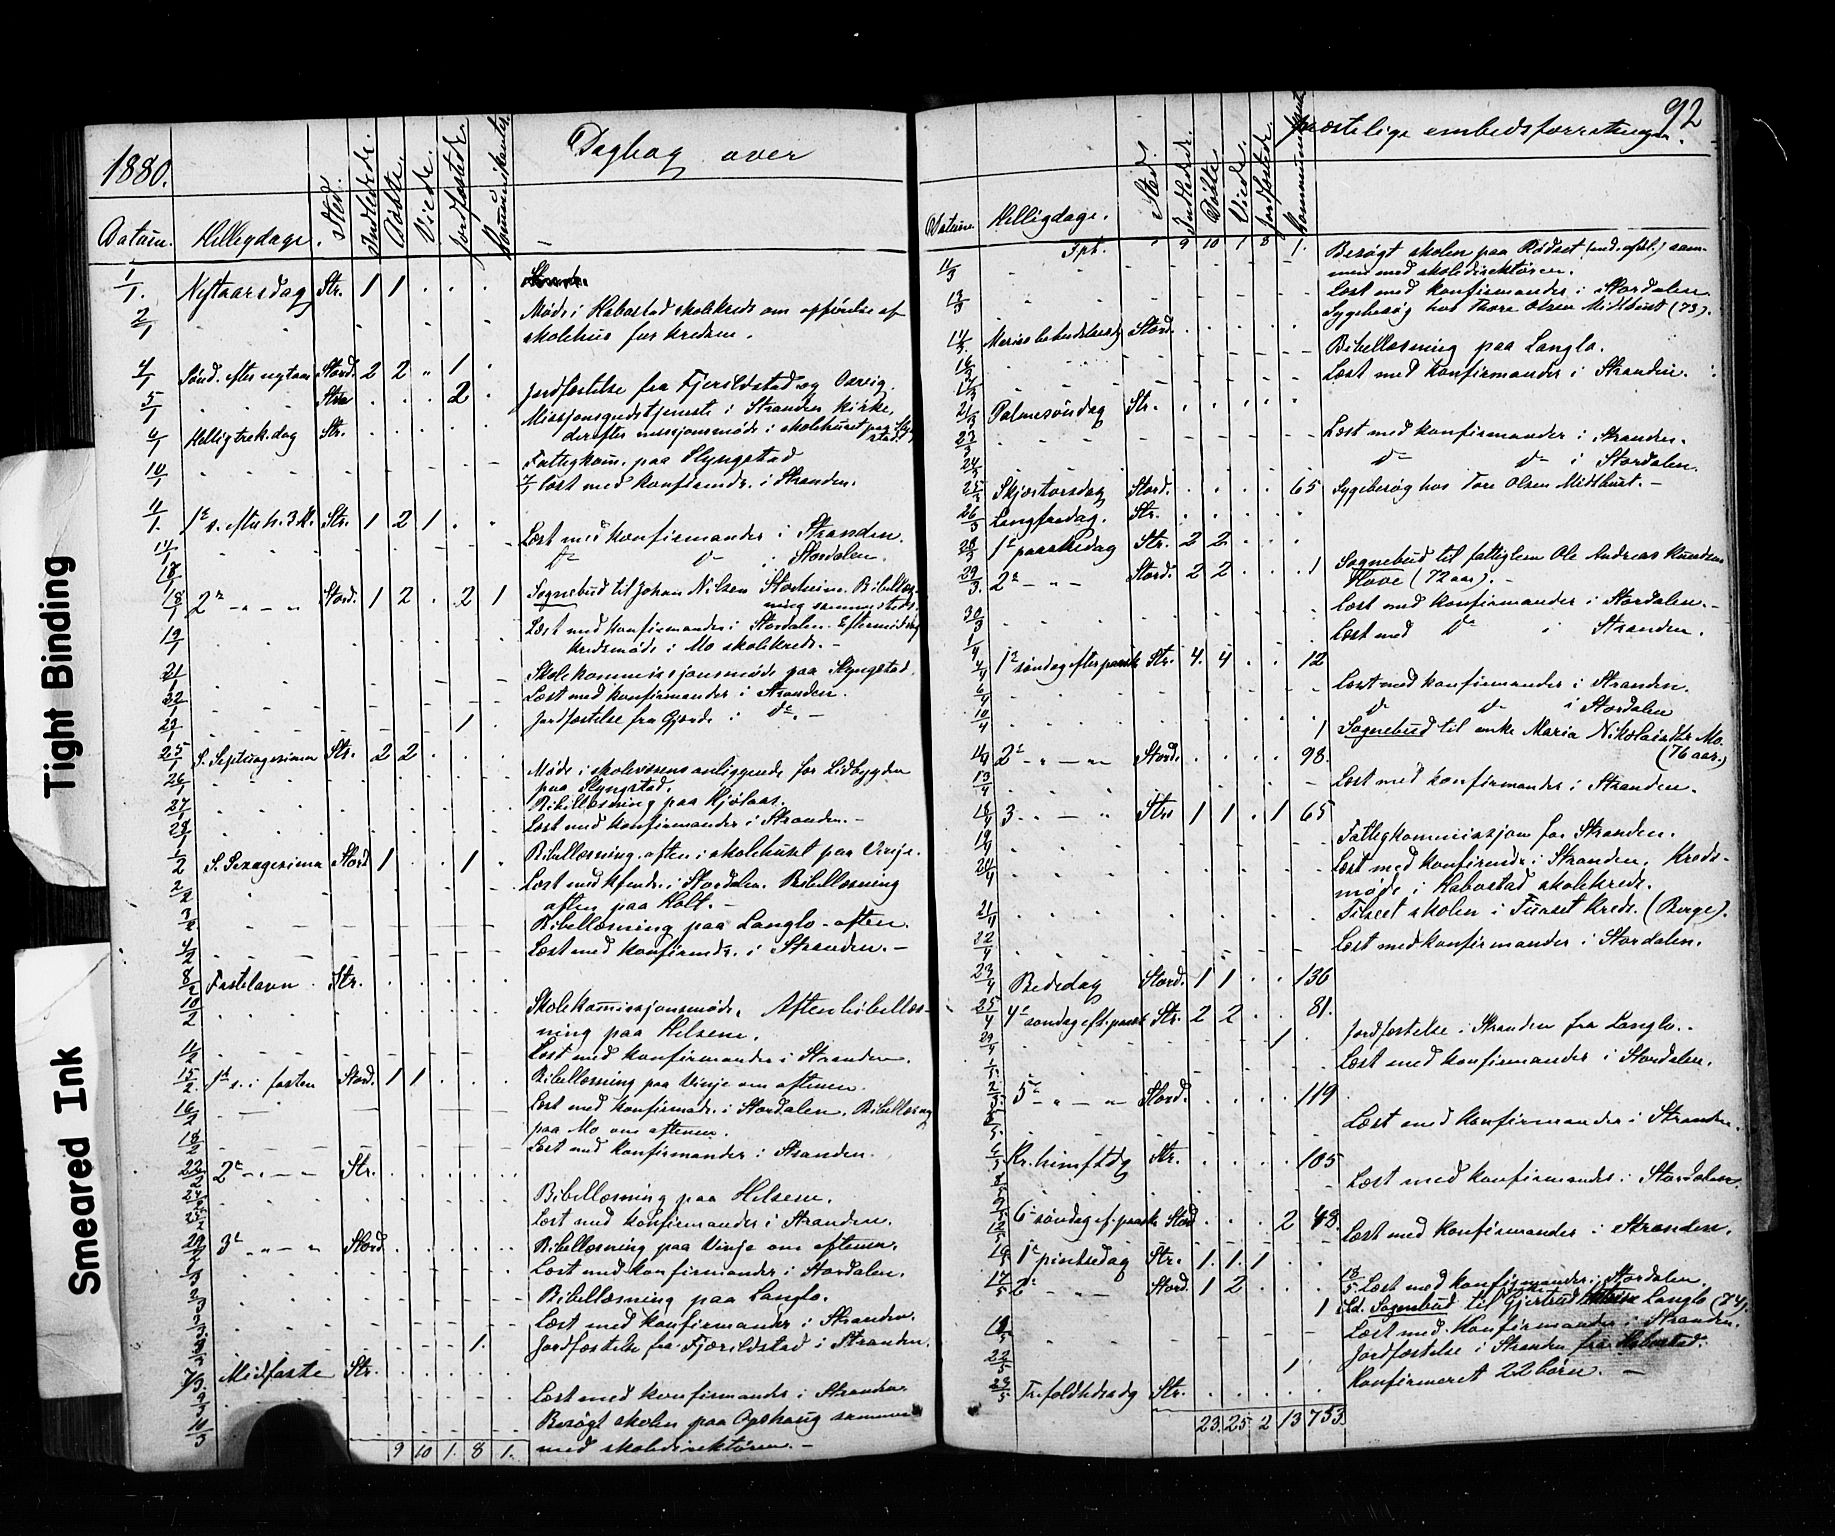 1880.
Dagbog over
Datum. Helligdage. Sted. Indledede. Døbte. Viede. Jordfæstede. Kommunikanter.
1/1. Nytaarsdag Str. 1 1 . . .
2/1 Møde i Habostad skolekreds om opførelse af
skolehus for kredsen.
4/1 Sønd. efter nytaar Stord. 2 2 " 1 .
5/1 . . . Stra . . . 2 . Jordfæstelse fra Fjørildstad og Overvig.
6/1 Helligtrek.dag Str. . . . . . Missjonsgudstjeneste i Stranden kirke,
derefter missjonsmøde i skolehuset paa Slyngstad.
10/1 Fattigkom. paa Slyngstad
7/1 Læst med konfirmdr. i Stranden.
11/1. 1ste s. efter h. 3 K. Str. 1 2 1 . .
14/1 Læst med konfirmander i Stranden.
17/1 do do i Stordalen.
18/1 2n " " Stord. 1 2 . 2 1 Sognebud til Johan Nilsen Storheim. Bibellæs-
ning sammesteds.
19/1 Læst med konfirmander i Stordalen. Eftermiddag
kredsmøde i Mo skolekreds.
21/1 Skolekommissjonsmøde paa Slyngstad.
22/1 Læst med konfirmander i Stranden.
23/1 . . . 1 . Jordfæstelse fra Gjærde i do. -
25/1 S. Septuagesima Str. 2 2 . . .
26/1 Møde i skolevæsens anliggende for Lidbygden
paa Slyngstad.
27/1 Bibellæsning paa Kjølaas.
28/1 Læst med konfirmander i Stranden. -
1/2 S. Sexagesima Stord 1 . . 1 . Bibellæsning aften i skolehuset paa Vinje.
2/2 Læst med kfmdr. i Stordalen. Bibellæsning
aften paa Holt. -
3/2 Bibellæsning paa Langlo aften.
4/2 Læst med konfirmdr. i Stranden. -
8/2 Fastelavn . Str. . . . . .
10/2 Skolekommissjonsmøde. Aften bibellæs-
ning paa Helsem.
11/2 Læst med konfirmander i Stranden.
15/2. 1ste s. i fasten Stord. 1 1 . . . Bibellæsning paa Vinje om aftenen.
16/2 Læst med konfirmdr. i Stordalen. Bibellæsning
paa Mo om aftenen.
18/2 Læst med konfirmander i Stranden.
22/2 2n " " Str. . . . . .
24/2 Bibellæsning paa Helsem.
25/2 Læst med konfirmander i Stranden.
29/2 3n " " Stord. . . . . . Bibellæsning paa Vinje om aftenen.
1/3 Læst med konfirmander i Stordalen.
2/3 Bibellæsning paa Langlo.
3/3 Læst med konfirmander i Stranden.
1. Jordfæstelse fra Fjørildstad i Stranden.
7/3 Midfaste Str. . . . . .
9/3 Læst med konfirmander i Stranden.
10/3 Besøgt skolen paa Opshaug sammen
med skoledirektøren. -
9 10 1. 8 1.
92
præstelige embedsforretninger.
Datum. Helligdage. Sted. Indledede. Døbte. Viede. Jordfæstede. Kommunikanter
Tpt. " 9 10 1 8 1.
11/3 Besøgt skolen paa Rødset (md. afdel.) sam-
men med skoledirektøren.
13/3 Læst med konfirmander i Stordalen.
Sygebesøg hos Thore Olsen Midthust (73).
14/3 Mariæ bebudelsesdg Stord. . . . . .
16/3 Bibellæsning paa Langlo.
17/3 Læst med konfirmander i Stranden.
21/3 Palmesøndag Str. . . . . .
23/3 Læst med konfirmander i Stranden.
24/3 do do i Stordalen.
25/3 Skjærtorsdag Stord. . . . . 65 Sygebesøg hos Tore Olsen Midthust. -
26/3 Langfredag. Str. . . . . .
28/3 1ste paaskedag Str. 2 2 . . .
29/3. 2n - " " Stord. 2 2 . . 1 Sognebud til fattiglem Ole Andreas Knudsen
Hove (72 aar). -
30/3 Læst med konfirmander i Stordalen. -
1/4 Læst med do i Stranden.
4/4 1ste søndag efter paaske Str. 4. 4 . . 12
6/4 Læst med konfirmander i Stranden.
10/4 do do i Stordalen
1 Sognebud til enke Maria Nikolaisdtr Mo.
(76 aar.)
11/4 2n " " Stord. . . . . 98.
13/4 Læst med konfirmander i Stranden.
18/4 3 " " Str 1 1 . 1 65
19/4 Fattigkommissjon for Stranden.
20/4 Læst med konfirmdr. i Stranden. Kreds-
møde i Habostad skolekreds.
21/4 Tilseet skolen i Furset kreds. (Berge).
22/4 Læst med konfirmander i Stordalen.
23/4 Bededag Stord. 1 1 . . 136
25/4 4de søndag eft. paask Str. 2 2 . . 81.
29/4 1 . Jordfæstelse i Stranden fra Langlo. .
1/5. Læst med konfirmander i Stordalen.
2/5. 5te " " Stord. . . . . 119
5/5. Læst med konfirmander i Stranden.
6/5 Kr. himftdg Str. . . . . 105
8/5 Læst med konfirmander i Stordalen.
9/5 6 søndag ef. paaske Stord . . . 2 48.
12/5 Læst med konfirmander i Stranden.
16/5 1ste pintsedag Str. 1. 1. 1 . .
17/5 2n " " Stord. 1 2 . . 13/5 Læst med konfirmander i Stordalen.
1 Sd. Sognebud til Gjertrud Langlo (74).
19/5 Læst med konfirmander i Stranden.
22/5 1 . Jordfæstelse i Stranden fra Habostad.
23/5 Trefoldhedsdg Str. . . . . . Konfirmeret 22 børn. -
23. 25 2 13 753
Tight Binding
Smeared Ink